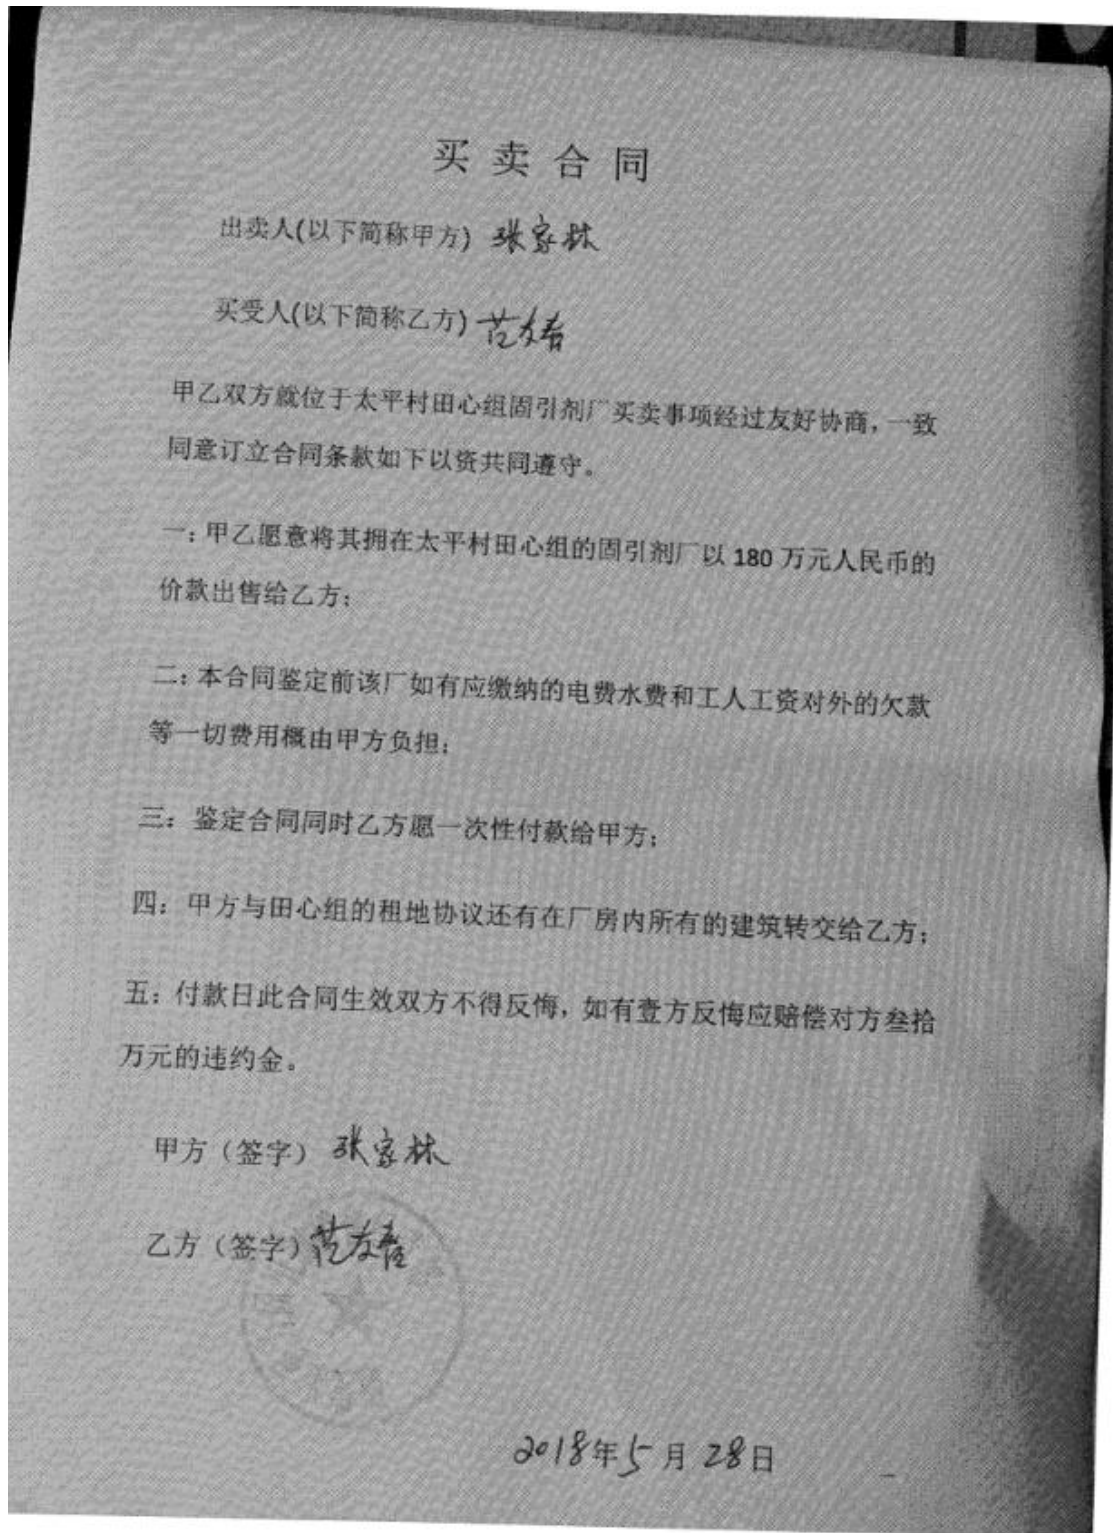 买卖合同
出卖人(以下简称甲方) 张家林
买受人(以下简称乙方) 范友
甲乙双方就位于太平村田心组固引剂厂买卖事项经过友好协商，一致
同意订立合同条款如下以资共同遵守。
一：甲乙愿意将其拥在太平村田心组的固引剂厂以 180 万元人民币的
价款出售给乙方；
二：本合同鉴定前该厂如有应缴纳的电费水费和工人工资对外的欠款
等一切费用概由甲方负担；
三：鉴定合同同时乙方愿一次性付款给甲方；
四：甲方与田心组的租地协议还有在厂房内所有的建筑转交给乙方；
五：付款日此合同生效双方不得反悔，如有壹方反悔应赔偿对方叁拾
万元的违约金。
甲方（签字） 张家林
乙方（签字）范友
2018年5月28日